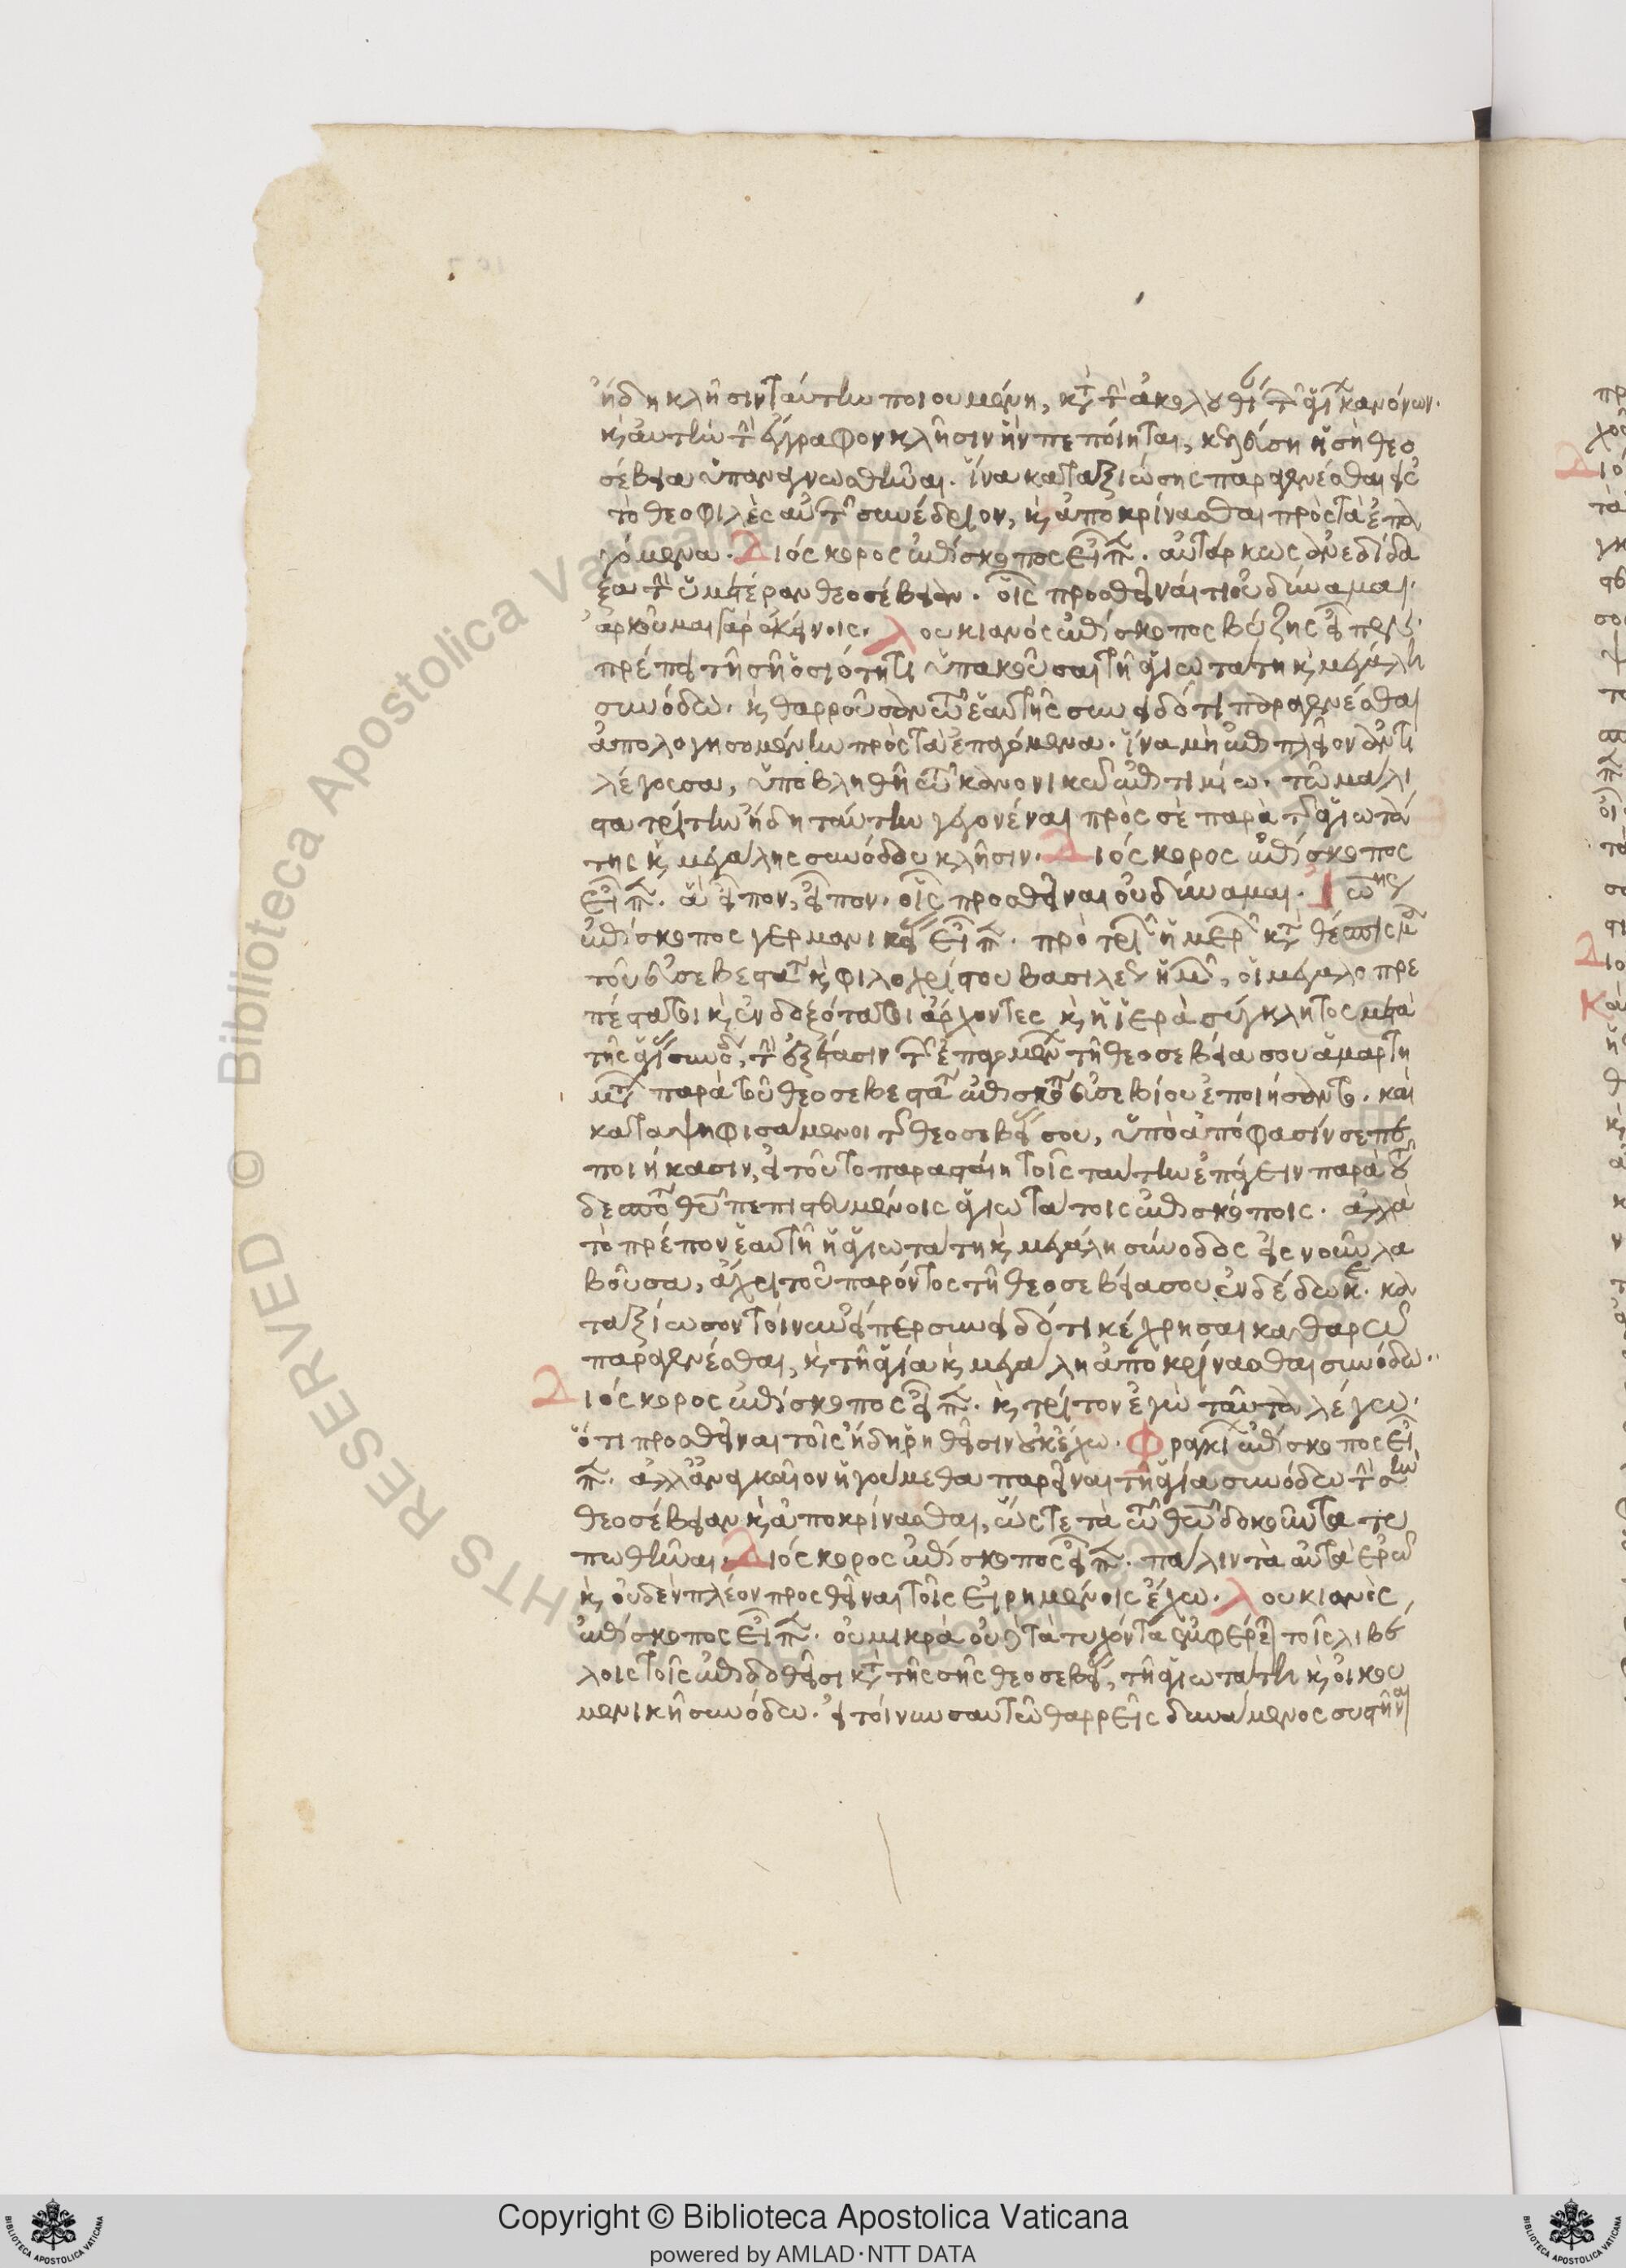 ἤδη κλῆσιν ταύτην ποιουμένη, κατὰ τὴν ἀκολουθίαν τῶν ἁγίων κανόνων.
καὶ αὐτὴν τὴν ἔγγραφον κλῆσιν ἣν πεποίηται, κελεύσει ἡ σὴ θεο
σέβεια ὑπαναγνωσθῆναι. ἵνα καταξιώσῃς παραγενέσθαι εἰς
τὸ θεοφιλὲς αὐτῆς συνέδριον, καὶ ἀποκρίνασθαι πρὸς τὰ ἐπα
γόμενα. Διόσκορος ἐπίσκοπος εἶπεν. αὐτάρκως ἀνεδίδα
ξα τὴν ὑμετέραν θεοσέβειαν. οἷς προσθεῖναί τι οὐ δύναμαι.
ἀρκοῦμαι γὰρ ἐκείνοις. Λουκιανὸς ἐπίσκοπος βύζης εἶπεν.
πρέπει τῇ σῇ ὁσιότητι ὑπακοῦσαι τῇ ἁγιωτάτῃ καὶ μεγάλῃ
συνόδῳ. καὶ θαρροῦσαν τῷ ἑαυτῆς συνειδότι παραγενέσθαι
ἀπολογησομένην πρὸς τὰ ἐπαγόμενα. ἵνα μὴ ἐπὶ πλεῖον ἀντι
λέγουσα, ὑποβληθῇ τῷ κανονικῷ ἐπιτιμίῳ. τῷ μάλι
στα τρίτην ἤδη ταύτην γεγονέναι πρὸς σὲ παρὰ τῆς ἁγιωτά
της καὶ μεγάλης συνόδου κλῆσιν. Διόσκορος ἐπίσκοπος
εἶπεν. ἃ εἶπον, εἶπον. οἷς προσθεῖναι οὐ δύναμαι. Ἰωάννης
ἐπίσκοπος γερμανικείας εἶπεν. πρὸ τριῶν ἡμερῶν κατὰ θέσπισμα
τοῦ εὐσεβεστάτου καὶ φιλοχρίστου βασιλέως ἡμῶν, οἱ μεγαλοπρε
πέστατοι καὶ ἐνδοξότατοι ἄρχοντες καὶ ἡ ἱερὰ σύγκλητος μετὰ
τῆς ἁγίας συνόδου, τὴν ἐξέτασιν τῶν ἐπαγομένων τῇ θεοσεβείᾳ σου ἁμαρτη
μάτων παρὰ τοῦ θεοσεβεστάτου ἐπισκόπου εὐσεβίου ἐποιήσαντο. καὶ
καταψηφισάμενοι τῆς θεοσεβείας σου, ὑπὸ ἀπόφασίν σε πε
ποιήκασιν, εἰ τοῦτο παρασταίη τοῖς ταύτην ἐπάγειν παρὰ τοῦ
δεσπότου θεοῦ πεπιστευμένοις ἁγιωτάτοις ἐπισκόποις. ἀλλὰ
τὸ πρέπον ἑαυτῇ ἡ ἁγιωτάτη καὶ μεγάλη σύνοδος εἰς νοῦν λα
βοῦσα, ἄχρι τοῦ παρόντος τῇ θεοσεβείᾳ σου ἐνδέδωκε. κα
ταξίωσον τοίνυν εἴπερ συνειδότι κέχρησαι καθαρῷ
παραγενέσθαι, καὶ τῇ ἁγίᾳ καὶ μεγάλῃ ἀποκρίνασθαι συνόδῳ.
Διόσκορος ἐπίσκοπος εἶπεν. καὶ τρίτον ἐγὼ ταῦτα λέγω.
ὅτι προσθεῖναι τοῖς ἤδη ῥηθεῖσιν οὐκ ἔχω. Φραγκίων ἐπίσκοπος εἶ
πεν. ἀλλ' ἀναγκαῖον ἡγούμεθα παρεῖναι τῇ ἁγίᾳ συνόδῳ τὴν σὴν
θεοσέβειαν καὶ ἀποκρίνασθαι, ὥστε τὰ τῷ θεῷ δοκοῦντα τυ
πωθῆναι. Διόσκορος ἐπίσκοπος εἶπεν. πάλιν τὰ αὐτὰ ἐρῶ
καὶ οὐδὲν πλέον προσθεῖναι τοῖς εἰρημένοις ἔχω. Λουκιανὸς
ἐπίσκοπος εἶπεν. οὐ μικρὰ οὐδὲ τὰ τυχόντα ἐμφέρεται τοῖς λιβέ
λοις τοῖς ἐπιδοθεῖσι κατὰ τῆς σῆς θεοσεβείας, τῇ ἁγιωτάτῃ καὶ οἰκου
μενικῇ συνόδῳ. εἰ τοίνυν σαυτῷ θαρρεῖς δυνάμενος συστῆναι